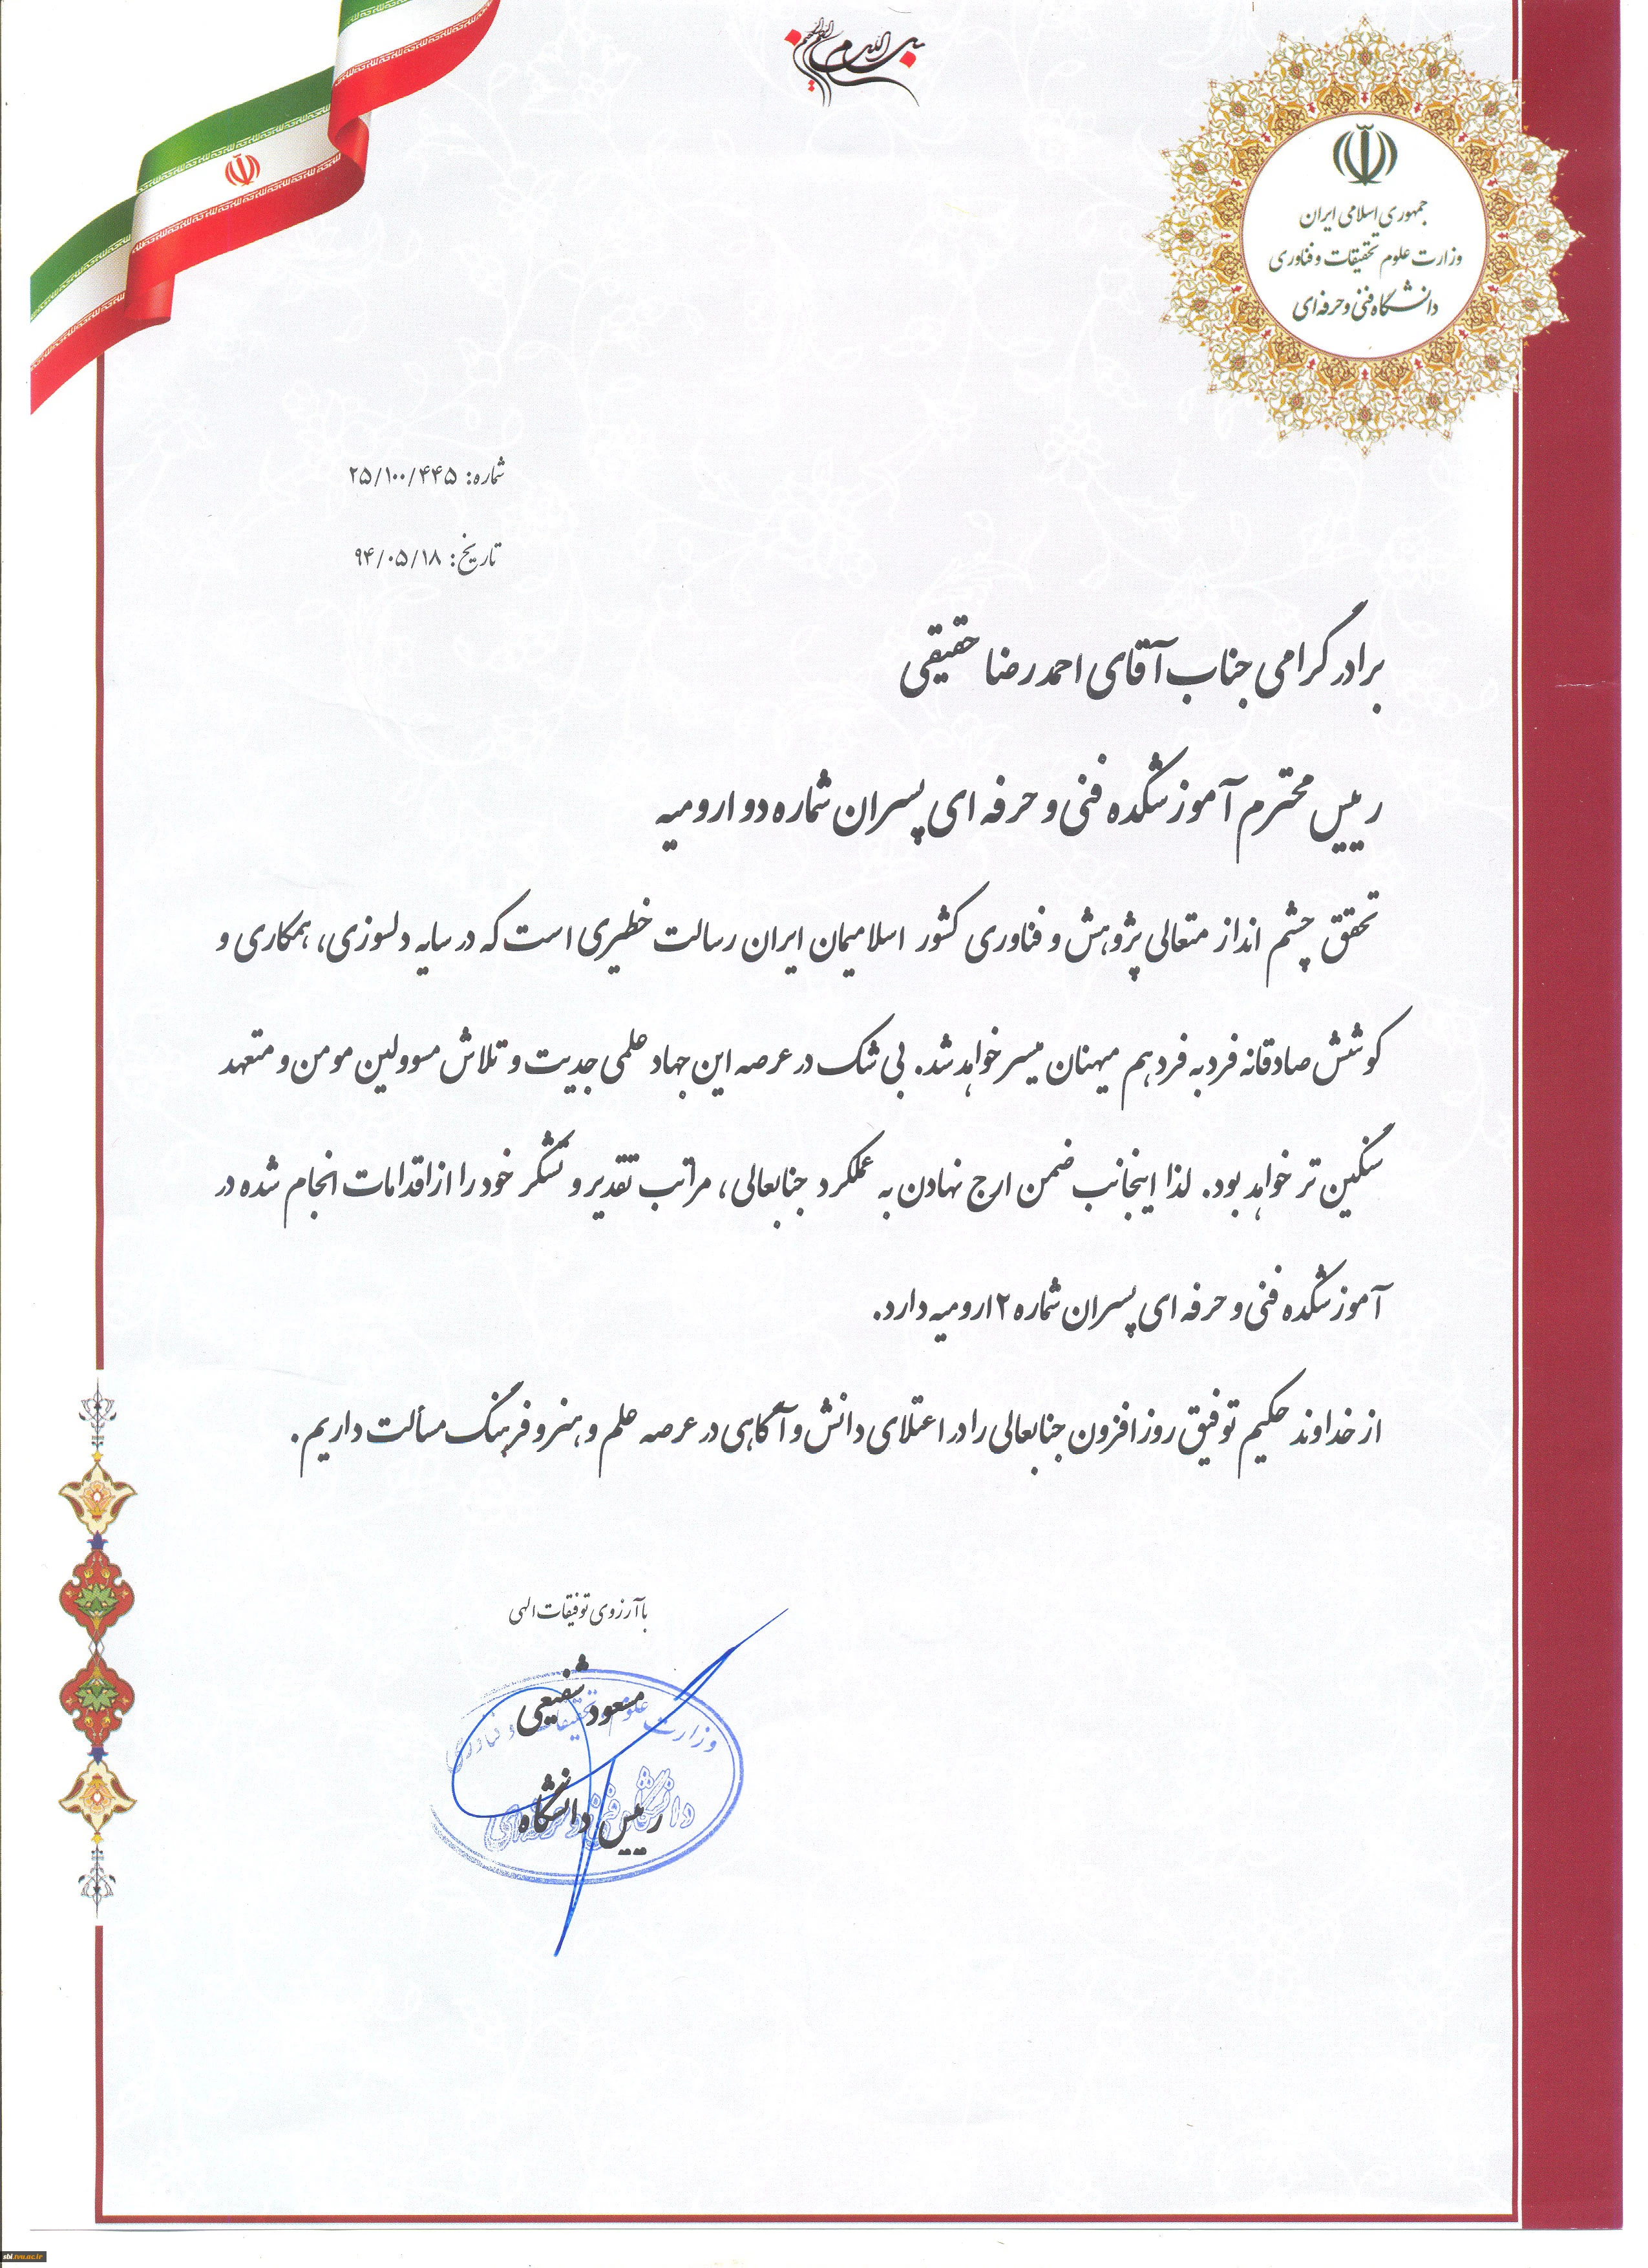 بسم الله الرحمن الرحیم
جمهوری اسلامی ایران
وزارت علوم تحقیقات و فناوری
دانشگاه فنی و حرفه‌ای
شماره: ۲۵/۱۰۰/۴۴۵
تاریخ: ۹۴/۰۵/۱۸
برادر گرامی جناب آقای احمدرضا حقیقی
رییس محترم آموزشکده فنی و حرفه ای پسران شماره دو ارومیه
تحقق چشم انداز متعالی پژوهش و فناوری کشور اسلامیمان ایران رسالت خطیری است که در سایه دلسوزی، همکاری و
کوشش صادقانه فرد به فرد هم میهنان میسر خواهد شد. بی شک در عرصه این جهاد علمی جدیت و تلاش مسوولین مومن و متعهد
سنگین تر خواهد بود. لذا اینجانب ضمن ارج نهادن به عملکرد جنابعالی، مراتب تقدیر و تشکر خود را از اقدامات انجام شده در
آموزشکده فنی و حرفه ای پسران شماره ۲ ارومیه دارد.
از خداوند حکیم توفیق روز افزون جنابعالی را در اعتلای دانش و آگاهی در عرصه علم و هنر و فرهنگ مسألت داریم.
با آرزوی توفیقات الهی
مسعود شفیعی
وزارت علوم تحقیقات و فناوری
رییس دانشگاه
دانشگاه فنی و حرفه‌ای
sbi.tvu.ac.ir